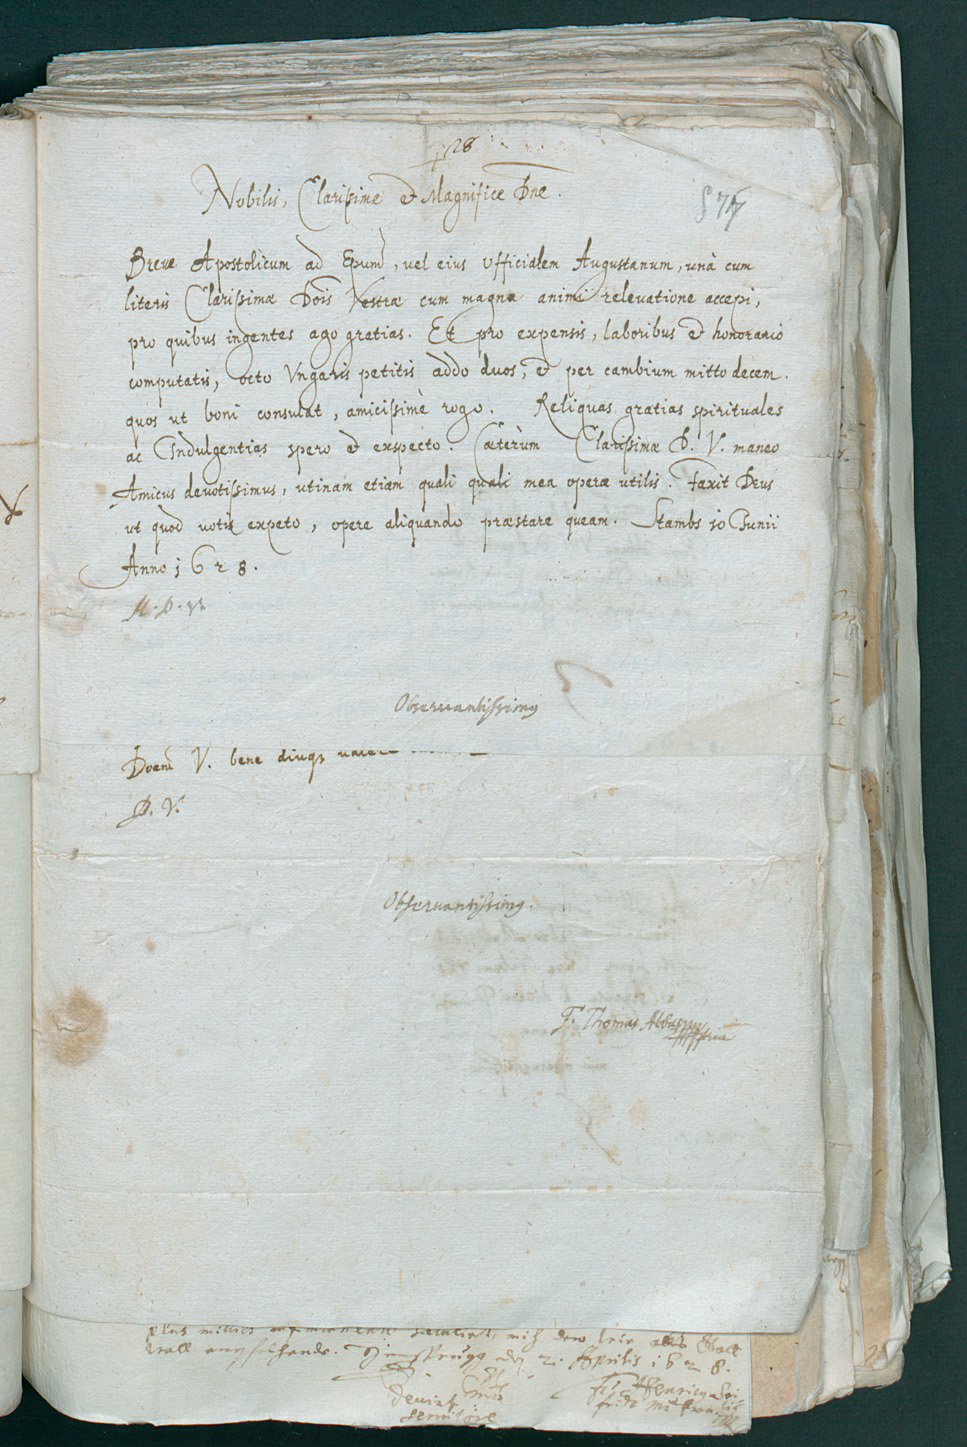 28
Nobilis, Clarissime et Magnifice Dne.
577
Breve Apostolicum ad Epum, vel eius Officialem Augustanum, unà cum
literis Clarissimæ Dois Vestræ cum magna animi relevatione accepi,
pro quibus ingentes ago gratias. Et pro expensis, laboribus et honorario
computatis, octo Vngaris petitis addo duos, et per cambium mitto decem.
quos ut boni consulat, amicissimè rogo. Reliquas gratias spirituales
ac Indulgentias spero et exspecto. Cæterùm Clarissimæ D. V. maneo
Amicus devotissimus, utinam etiam quali quali mea opera utilis. Faxit Deus
ut quod votis expeto, opere aliquando præstare queam. Stambs 10 Iunii
Anno 1628.
D. V.
Observantissimus
V. bene diuq3
D. V.
Observantissimus.
F. Thomas Abbas
Aprilis 1628.